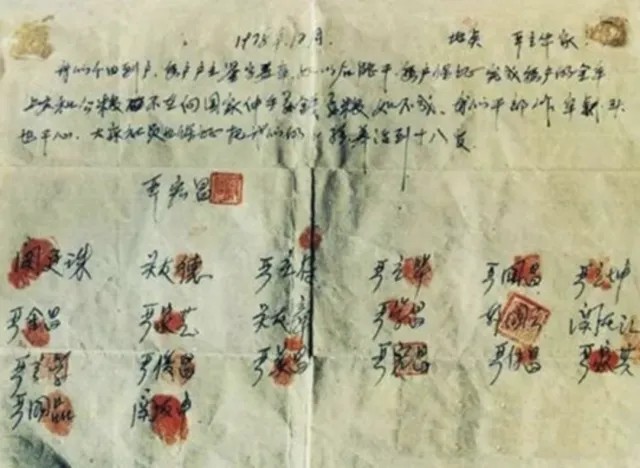 1978年12月 地点 严立华家
我们分田到户，每户户主签字盖章，如以后能干，每户保证完成每户的全年
上交和公粮 不在向国家伸手要钱要粮，如不成，我们干部作牢刹头
也干心，大家社员也保证把我们的小孩养活到十八岁。
严宏昌
关廷珠 关友德 严立符 严立华 严国昌 严立坤
严金昌 严家芝 关友章 严学昌 韩国云 关友江
严立学 严俊昌 严美昌 严宏昌 严付昌 严家其
严国品 关友申